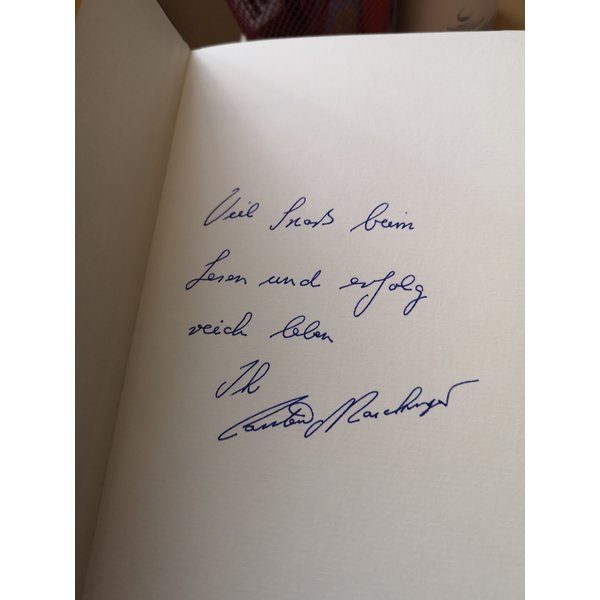 Viel Spaß beim
Lesen und erfolg
reich leben
Ihr
Carsten